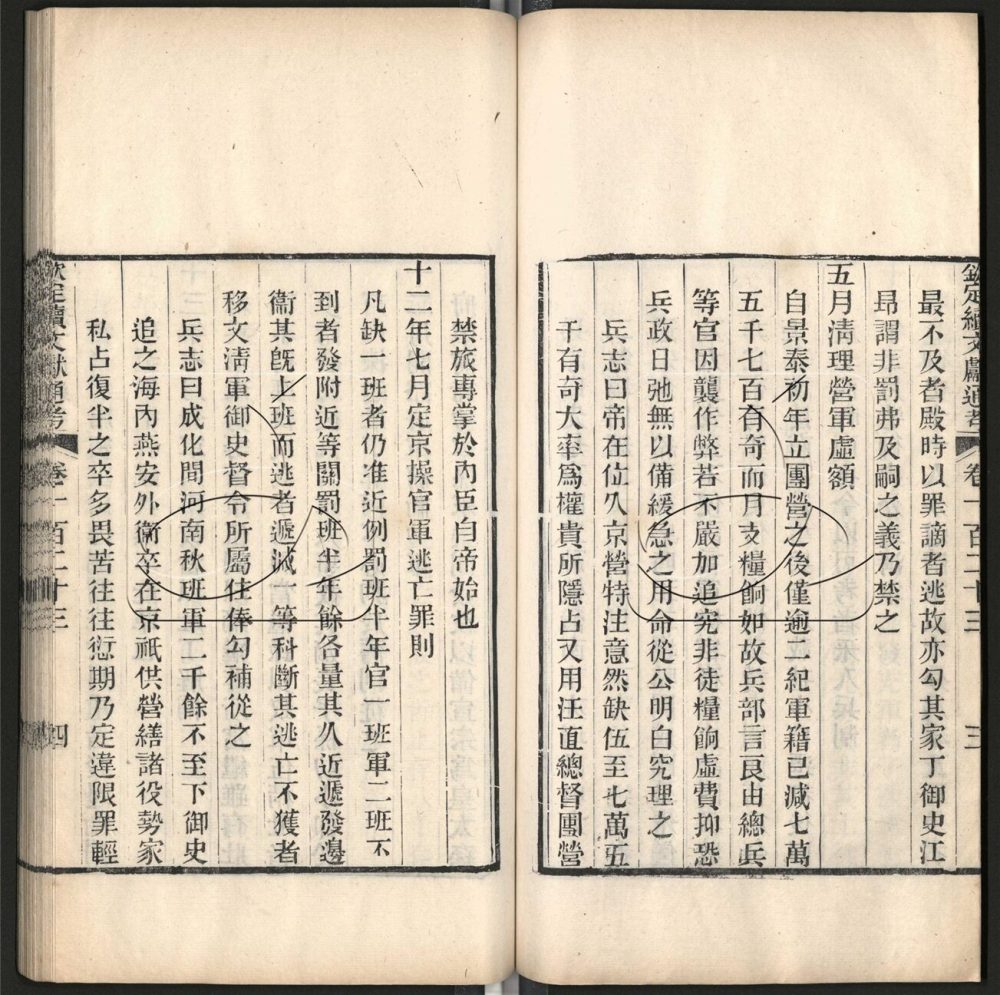 欽定續文獻通考 卷一百二十三 三
最不及者殿時以罪謫者逃故亦勾其家丁御史江
昂謂非罰弗及嗣之義乃禁之
五月淸理營軍虛額
自景泰初年立團營之後僅逾二紀軍籍已減七萬
五千七百有奇而月支糧餉如故兵部言艮由總兵
等官因襲作弊若不嚴加追究非徒糧餉虛費抑恐
兵政日弛無以備緩急之用命從公明白究理之
兵志曰帝在位久京營特注意然缺伍至七萬五
千有奇大率爲權貴所隱占又用汪直總督團營
禁旅專掌於內臣自帝始也
十二年七月定京操官軍逃亡罪則
凡缺一班者仍准近例罰班半年官一班軍二班不
到者發附近等關罰班半年餘各量其久近遞發邊
衞其旣上班而逃者遞減一等科斷其逃亡不獲者
移文淸軍御史督令所屬住俸勾補從之
兵志曰成化間河南秋班軍二千餘不至下御史
追之海內燕安外衞卒在京祇供營繕諸役勢家
私占復半之卒多畏苦往往愆期乃定違限罪輕
欽定續文獻通考 卷一百二十三 四